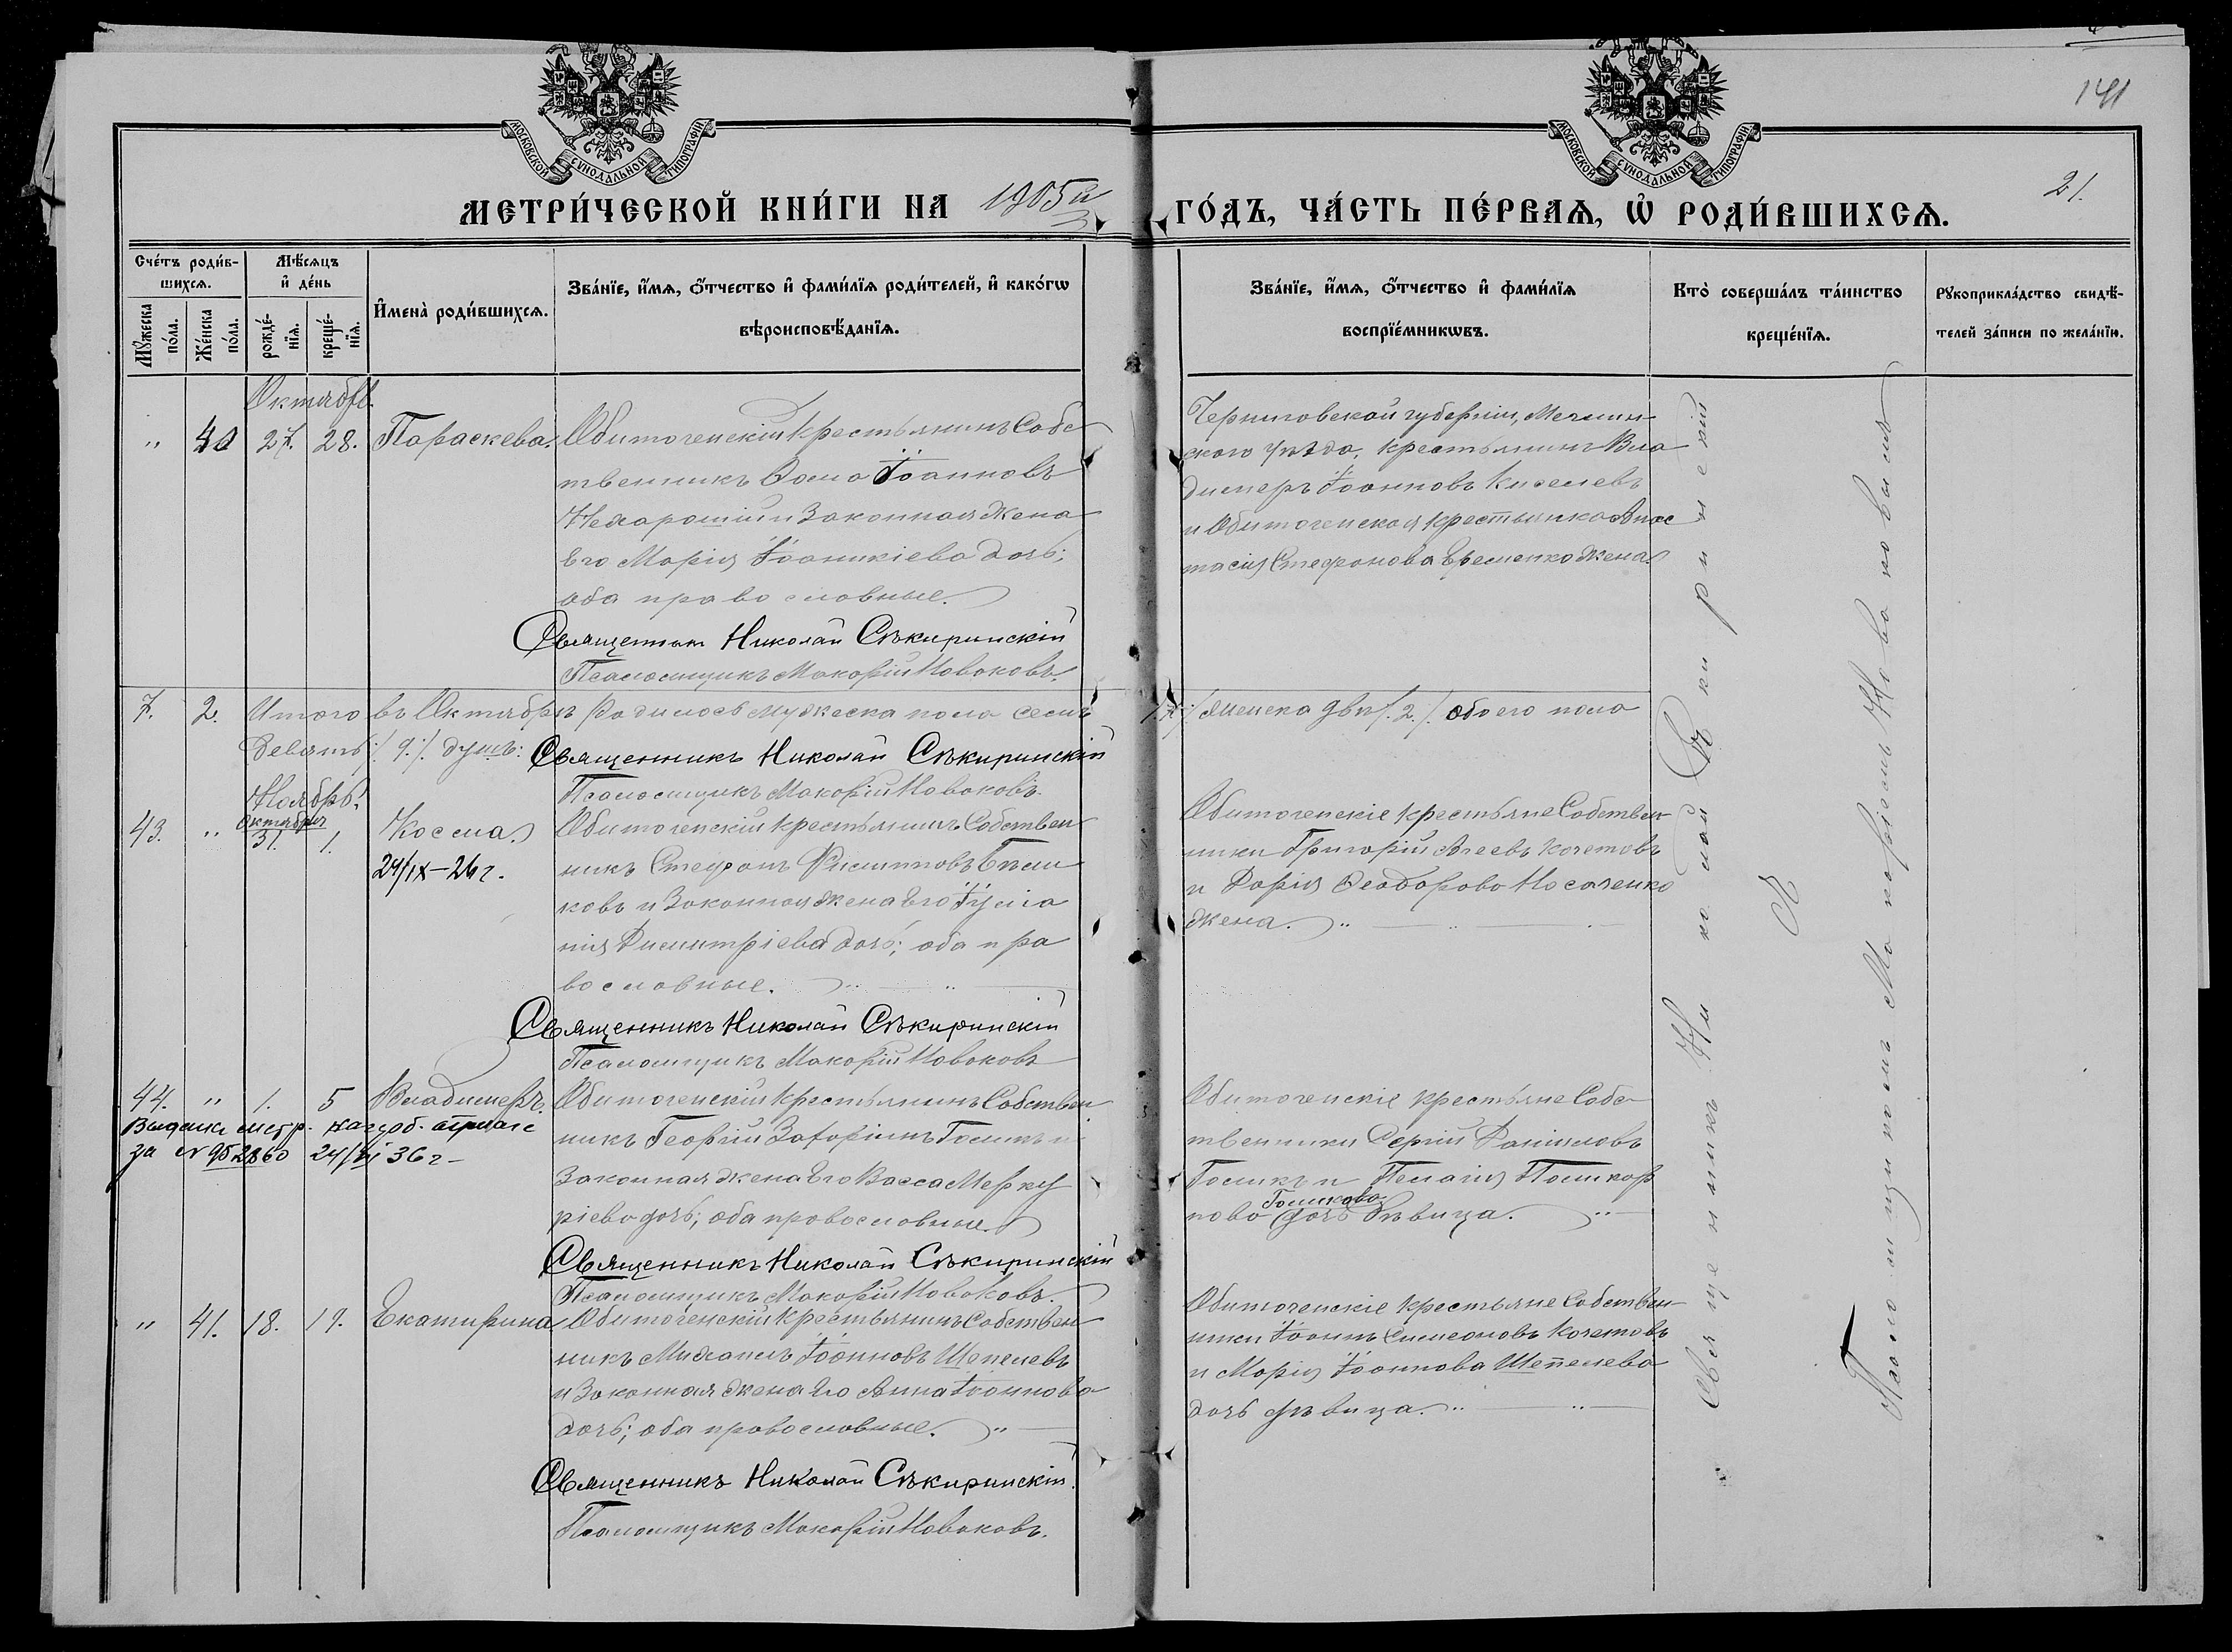 141
МОСКОВСКОЙ СѴНОДАЛЬНОЙ ТИПОГРАФІИ
МОСКОВСКОЙ СѴНОДАЛЬНОЙ ТИПОГРАФІИ
21.
МЕТРИ́ЧЕСКОЙ КНИ́ГИ НА 1905й ГО́ДЪ, ЧА́СТЬ ПЕ́РВАѦ, Ѡ҆ РОДИ́ВШИХСѦ.
Сче́тъ роди́в-
шихсѧ.
Мѣ́сѧцъ
и҆ де́нь
Мꙋ́жеска
по́ла.
Же́нска
по́ла.
рожде́-
нїѧ.
креще́-
нїѧ.
И҆мена̀ роди́вшихсѧ.
Зва́нїе, и҆́мѧ, ѻ҆́тчество и҆ фами́лїѧ роди́телей, и҆ како́гѡ
вѣроисповѣ́данїѧ.
Зва́нїе, и҆́мѧ, ѻ҆́тчество и҆ фами́лїѧ
воспрїе́мникѡвъ.
Кто̀ соверша́лъ та́инство
креще́нїѧ.
Рꙋкоприкла́дство свидѣ́-
телей за́писи по жела́нїю.
Октябрь.
" 40 27. 28. Параскева. Обиточенскій крестьянинъ Собс
твенникъ Ѳома Іоанновъ
Нехорошій и Законная жена
Его Марія Іоаникіева дочь;
оба православные.
Священникъ Николай Сѣкиринскій
Псаломщикъ Макарій Новаковъ.
Черниговской губерніи, Мглин-
ского уѣзда, крестьянинъ Вла
димеръ Іоанновъ Киселевъ
и Обиточенская крестьянка Анас
тасія Стефанова Еременко жена.
7. 2. Итого въ Октябрѣ родилось мужеска пола семь /7/ женска двѣ /.2./. обоего пола
девять /.9./. душъ: Священникъ Николай Сѣкиринскій
Псаломщикъ Макарій Новаковъ.
Ноябрь.
Октября
43. " 31. 1. Косма. Обиточенскій крестьянинъ Собствен
24/IX-26 г. никъ Стефанъ Филипповъ Бѣли
ковъ и Законная жена Его Іуліа
нія Димитріева дочь; оба пра
вославные.
Священникъ Николай Сѣкиринскій
Псаломщикъ Макарій Новаковъ
Обиточенскіе крестьяне Собствен
ники Григорій Агеевъ Кочетовъ
и Дарія Ѳеодорова Носаченко
жена.
44. " 1. 5 Владимеръ. Обиточенскій крестьянинъ Собствен
никъ Георгій Захаріинъ Голикъ и
Законная жена Его Васса Мерку
ріева дочь; оба православные.
за № 24/VI 36 г-
Священникъ Николай Сѣкиринскій
Псаломщикъ Макарій Новаковъ.
Обиточенскіе крестьяне Собс
твенники Сергій Даніиловъ
Голикъ и Пелагія Поликар
Голикова
пова дочь дѣвица.
" 41. 18. 19. Екатирина Обиточенскій крестьянинъ Собствен
никъ Михаилъ Іоанновъ Шепелевъ
и Законная жена Его Анна Іоаннова
дочь; оба православные.
Священникъ Николай Сѣкиринскій.
Псаломщикъ Макарій Новаковъ.
Обиточенскіе крестьяне Собствен-
ники Іоаннъ Симеоновъ Кочетовъ
и Марія Іоаннова Шепелева
дочь дѣвица.
Священникъ Николай Сѣкиринскій
Съ
Псаломщикомъ Макаріемъ Новаковымъ